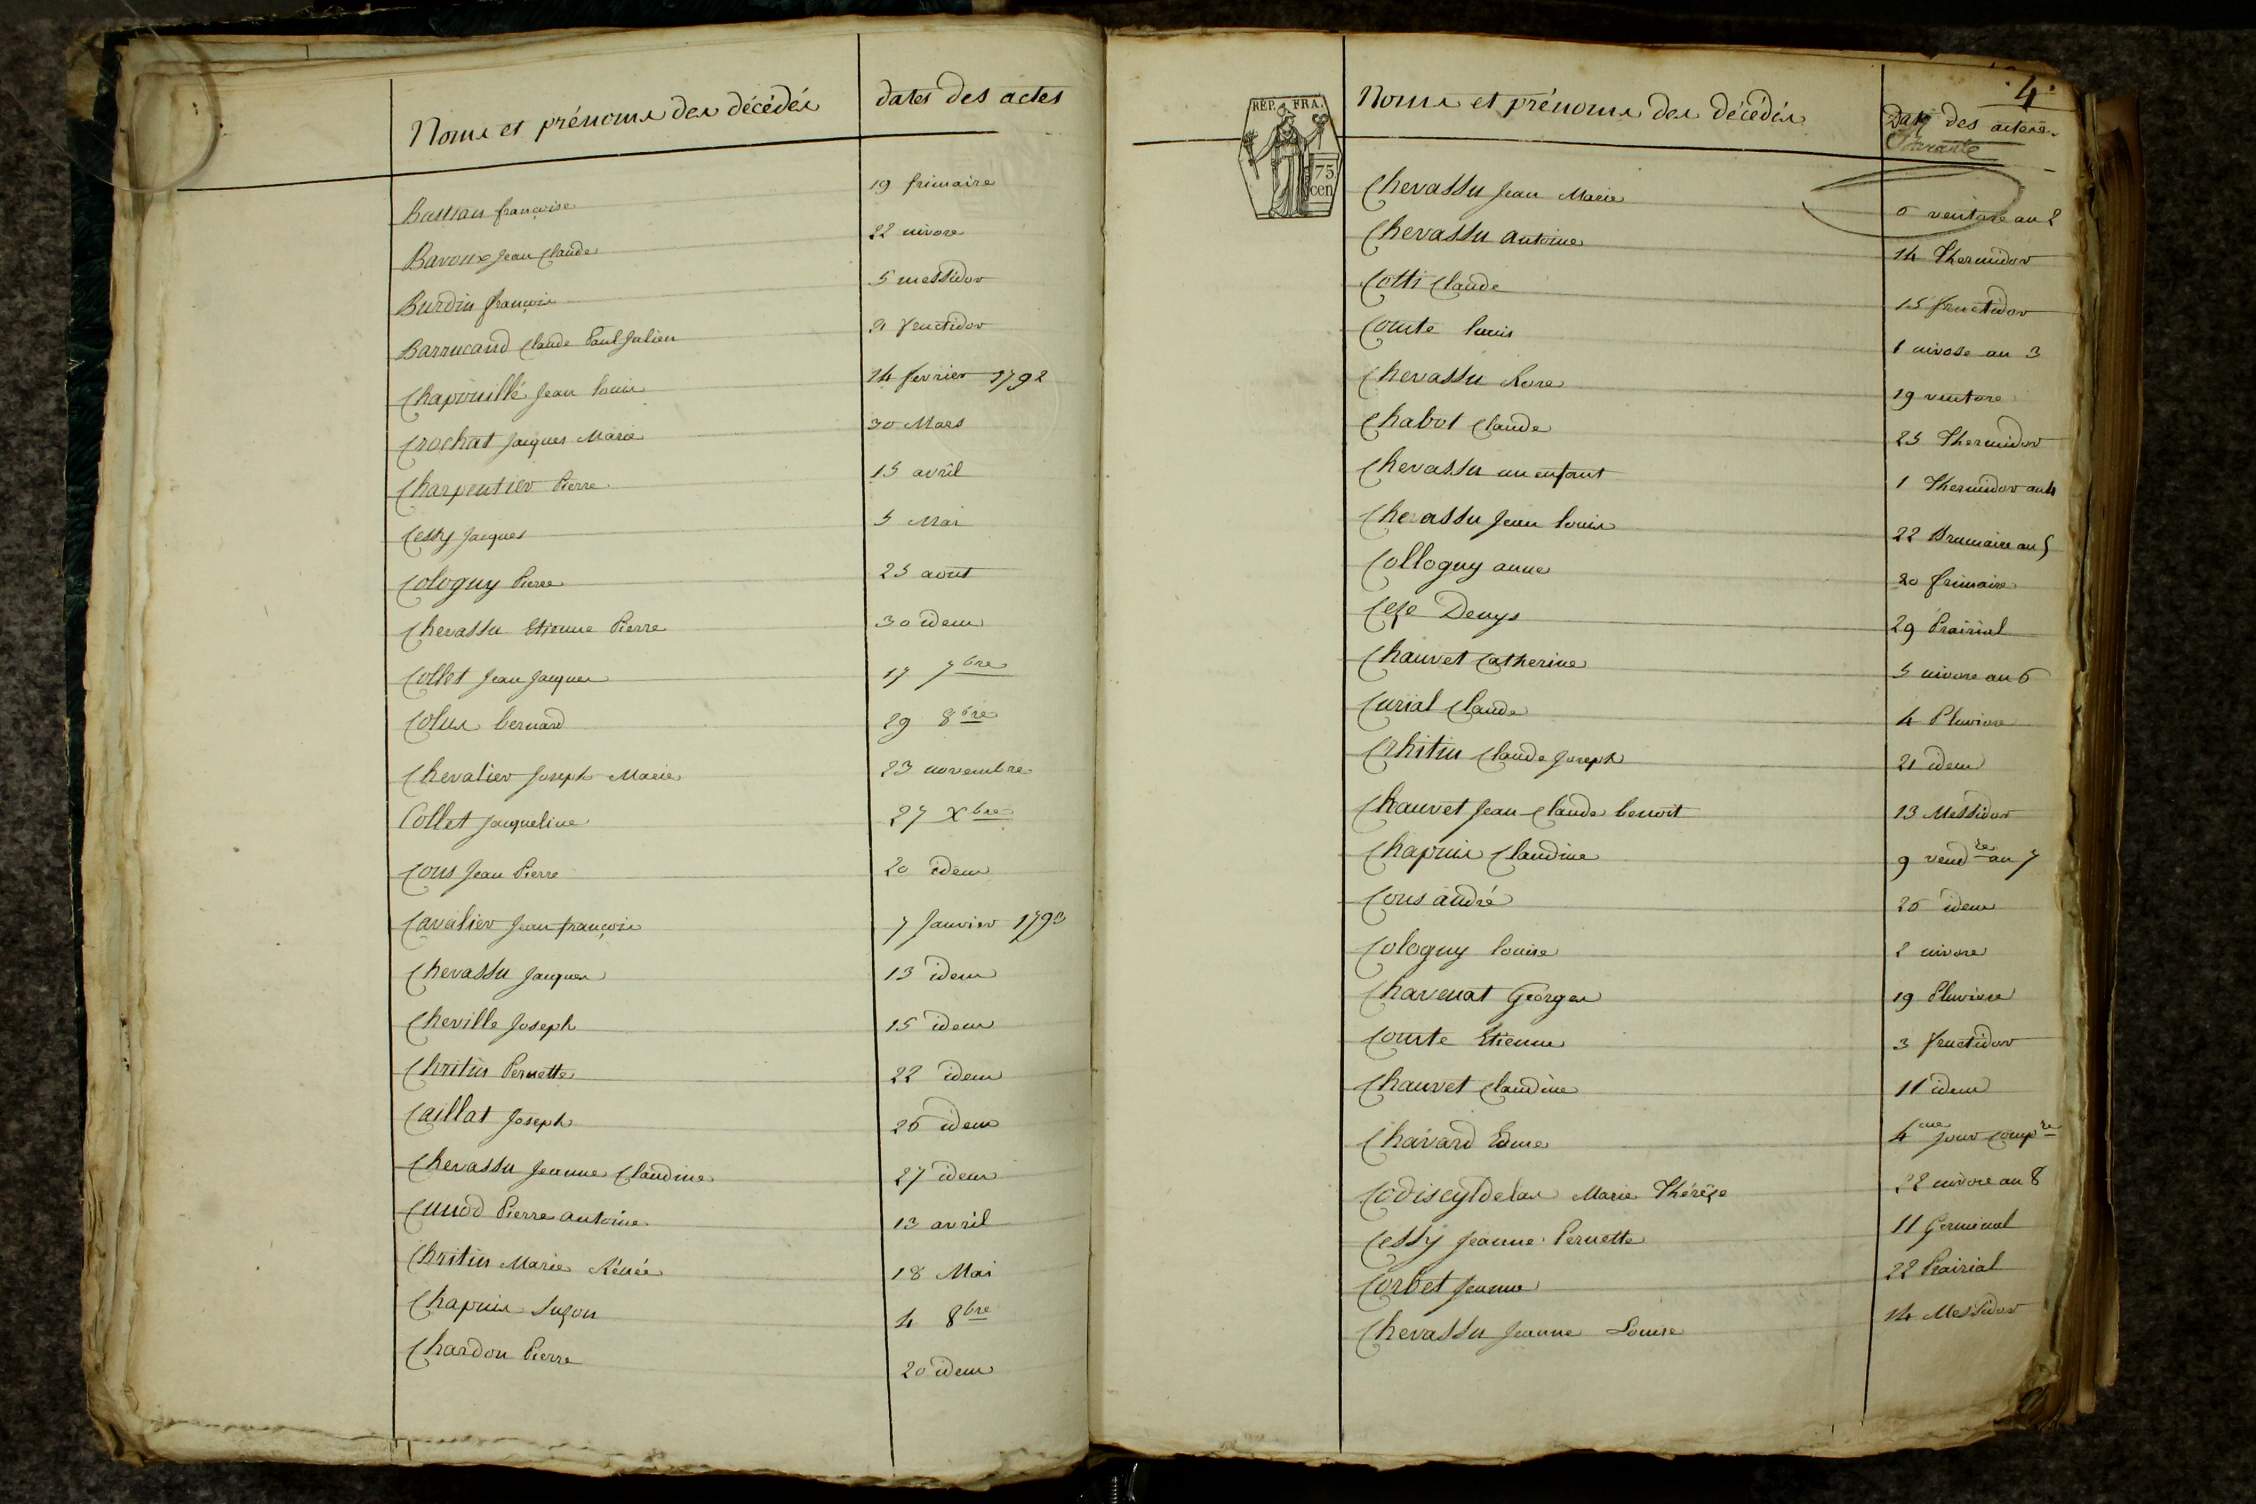 Noms et prénoms des décédés dates des actes
Bastian françoise 19 frimaire
Bavoux Jean Claude 22 nivose
Burdin françois 5 messidor
Barrucand Claude Paul Julien 9 fructidor
Chapouillé Jean louis 14 fevrier 1792
Crochat Jacques Marie 30 Mars
Charpentier Pierre 15 avril
Cessy Jacques 5 Mai
Cologny Pierre 25 aout
Chevassu Etienne Pierre 30 idem
Collet Jean Jacques 17 7bre
Colus bernard 29 8bre
Chevalier Joseph Marie 23 novembre
Collet Jacqueline 27 Xbre
Cous Jean Pierre 20 idem
Cavalier Jean françois 7 Janvier 1793
Chevassu Jacques 13 idem
Cheville Joseph 15 idem
Chritin Pernette 22 idem
Caillat Joseph 26 idem
Chevassu Jeanne Claudine 27 idem
Cunod Pierre antoine 13 avril
Chritin Marie Rénée 18 Mai
Chapuis Suzon 4 8bre
Chardon Pierre 20 idem
4.
REP. FRA.
75
cen
Noms et prénoms des décédés des actes
Chevassu Jean Marie 6 ventose an 2
Chevassu antoine 14 Thermidor
Cotti Claude 15 fructidor
Comte louis 1 nivose an 3
Chevassu Rose 19 ventose
Chabot Claude 25 Thermidor
Chevassu un enfant 1 Thermidor an 4
Chevassu Jean louis 22 Brumaire an 5
Collogny anne 20 frimaire
Denys 29 Prairial
Chauvet Catherine 5 nivose an 6
Curial Claude 4 Pluviose
Crhitin Claude Joseph 21 idem
Chauvet Jean Claude benoit 13 Messidor
Chapuis Claudine 9 vend re an 7
Cous andré 26 idem
Cologny louise 2 nivose
Chavenat Georges 19 Pluviose
Comte Etienne 3 fructidor
Chauvet Claudine 11 idem
Chavard Edme 4me jour comp re
Marie Thérèze 22 nivose an 8
Cessy Jeanne Pernette 11 Germinal
Corbet Jeanne 22 Prairial
Chevassu Jeanne Louise 14 Messidor